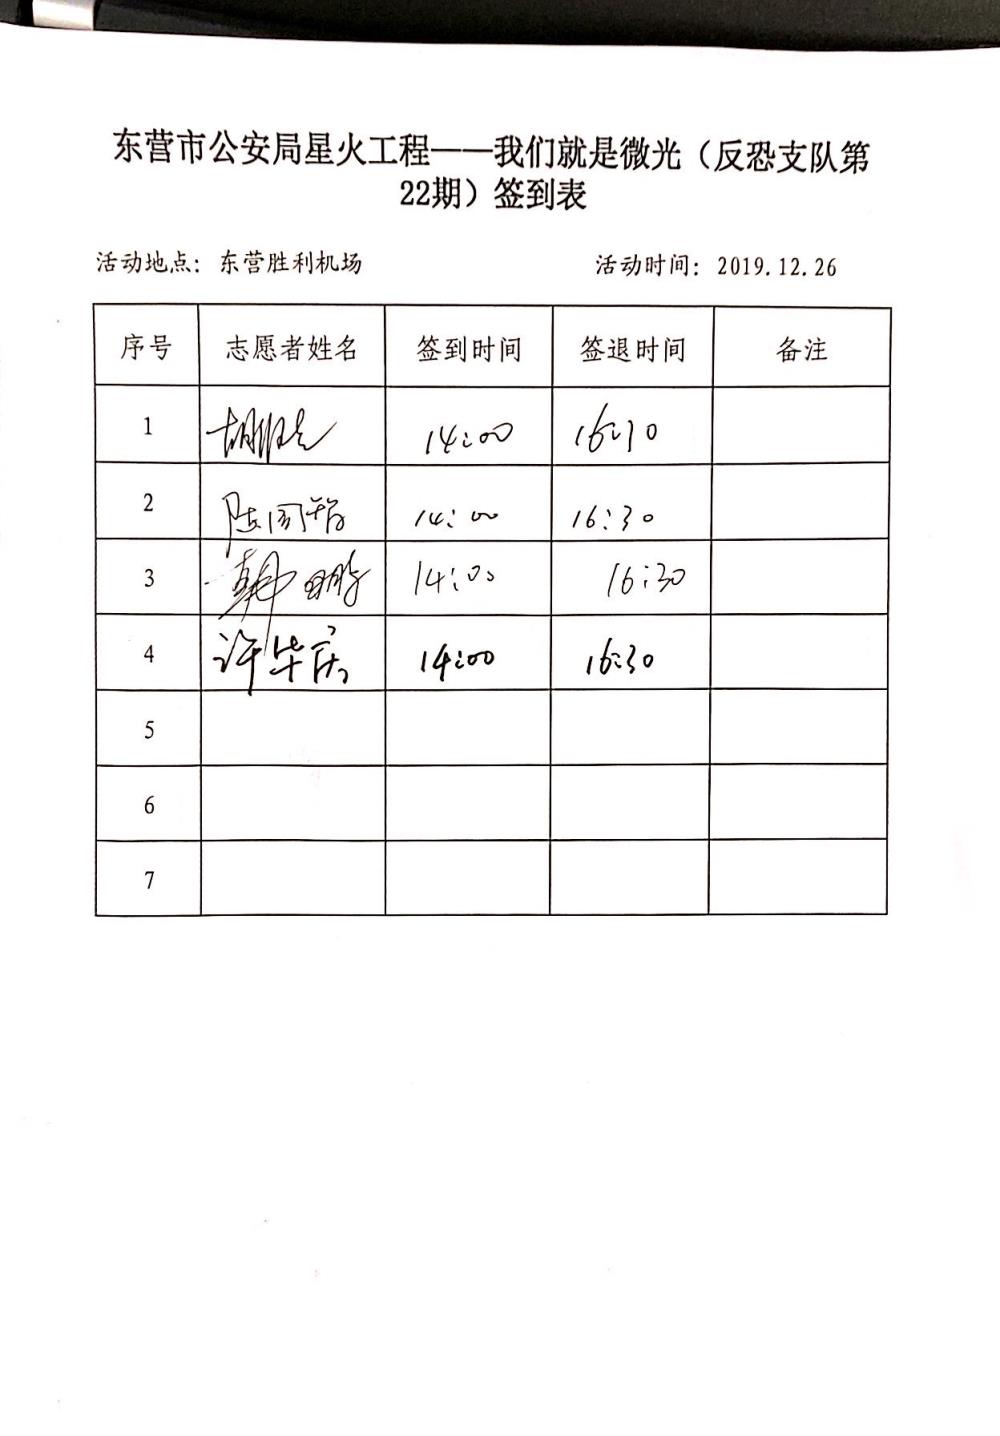 东营市公安局星火工程——我们就是微光（反恐支队第
22期）签到表
活动地点：东营胜利机场 活动时间：2019.12.26
序号 志愿者姓名 签到时间 签退时间 备注
1 胡 14:00 16:30
2 陈国 14:00 16:30
3 韩明鹏 14:00 16:30
4 许华庆 14:00 16:30
5
6
7